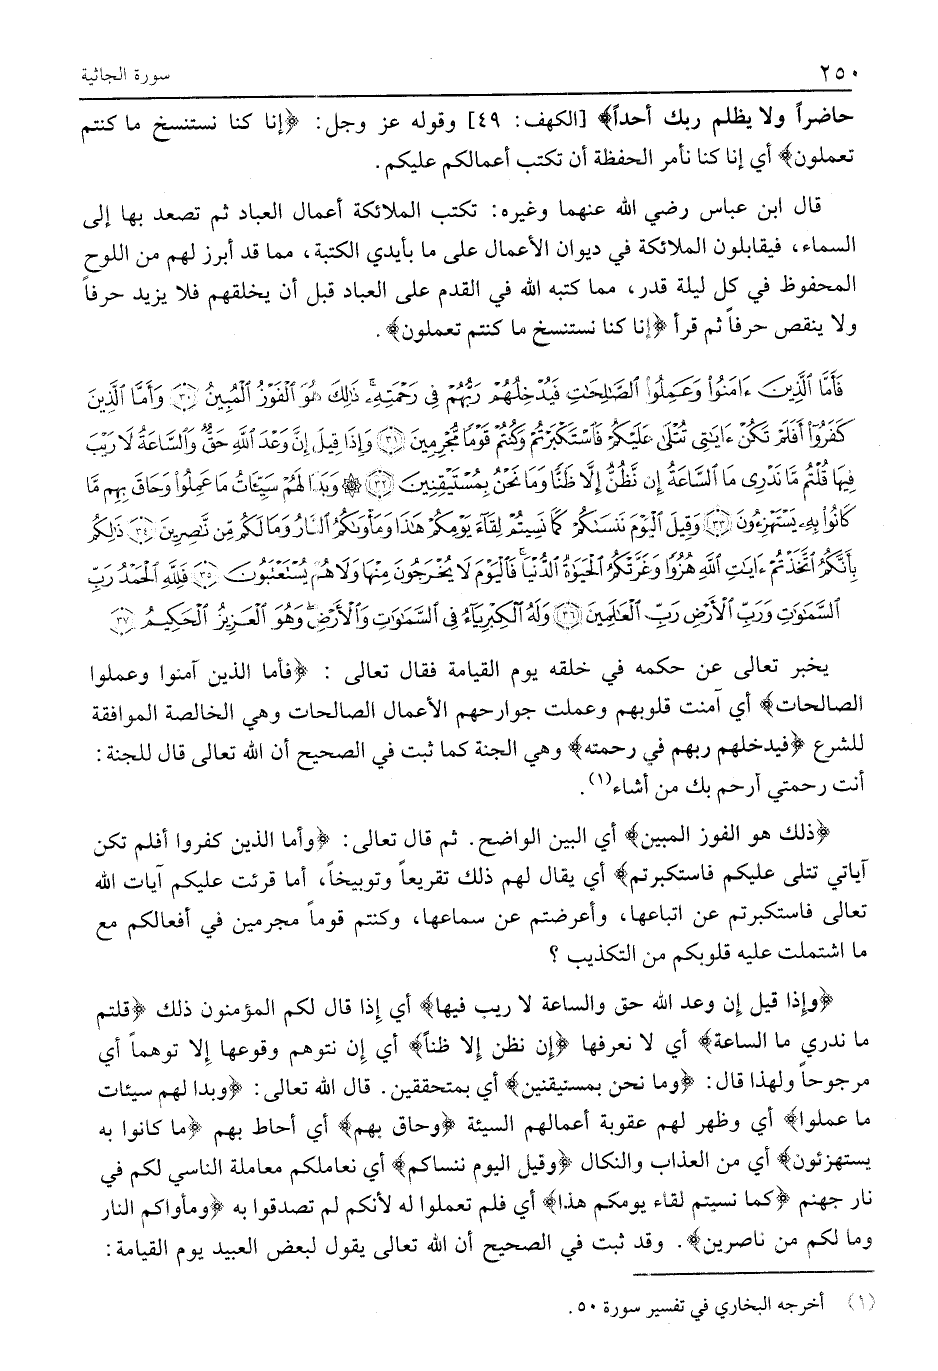 ٢٥٠ سورة الجاثية
حاضراً ولا يظلم ربك أحداً﴾ [الكهف: ٤٩] وقوله عز وجل: ﴿إنا كنا نستنسخ ما كنتم
تعملون﴾ أي إنا كنا نأمر الحفظة أن تكتب أعمالكم عليكم.
قال ابن عباس رضي الله عنهما وغيره: تكتب الملائكة أعمال العباد ثم تصعد بها إلى
السماء، فيقابلون الملائكة في ديوان الأعمال على ما بأيدي الكتبة، مما قد أبرز لهم من اللوح
المحفوظ في كل ليلة قدر، مما كتبه الله في القدم على العباد قبل أن يخلقهم فلا يزيد حرفاً
ولا ينقص حرفاً ثم قرأ ﴿إنا كنا نستنسخ ما كنتم تعملون﴾.
فَأَمَّا ٱلَّذِينَ ءَامَنُوا۟ وَعَمِلُوا۟ ٱلصَّـٰلِحَـٰتِ فَيُدْخِلُهُمْ رَبُّهُمْ فِى رَحْمَتِهِۦ ۚ ذَٰلِكَ هُوَ ٱلْفَوْزُ ٱلْمُبِينُ ٣٠ وَأَمَّا ٱلَّذِينَ
كَفَرُوٓا۟ أَفَلَمْ تَكُنْ ءَايَـٰتِى تُتْلَىٰ عَلَيْكُمْ فَٱسْتَكْبَرْتُمْ وَكُنتُمْ قَوْمًا مُّجْرِمِينَ ٣١ وَإِذَا قِيلَ إِنَّ وَعْدَ ٱللَّهِ حَقٌّ وَٱلسَّاعَةُ لَا رَيْبَ
فِيهَا قُلْتُم مَّا نَدْرِى مَا ٱلسَّاعَةُ إِن نَّظُنُّ إِلَّا ظَنًّا وَمَا نَحْنُ بِمُسْتَيْقِنِينَ ٣٢ ۞ وَبَدَا لَهُمْ سَيِّـَٔاتُ مَا عَمِلُوا۟ وَحَاقَ بِهِم مَّا
كَانُوا۟ بِهِۦ يَسْتَهْزِءُونَ ٣٣ وَقِيلَ ٱلْيَوْمَ نَنسَىٰكُمْ كَمَا نَسِيتُمْ لِقَآءَ يَوْمِكُمْ هَـٰذَا وَمَأْوَىٰكُمُ ٱلنَّارُ وَمَا لَكُم مِّن نَّـٰصِرِينَ ٣٤ ذَٰلِكُم
بِأَنَّكُمُ ٱتَّخَذْتُمْ ءَايَـٰتِ ٱللَّهِ هُزُوًا وَغَرَّتْكُمُ ٱلْحَيَوٰةُ ٱلدُّنْيَا ۚ فَٱلْيَوْمَ لَا يُخْرَجُونَ مِنْهَا وَلَا هُمْ يُسْتَعْتَبُونَ ٣٥ فَلِلَّهِ ٱلْحَمْدُ رَبِّ
ٱلسَّمَـٰوَٰتِ وَرَبِّ ٱلْأَرْضِ رَبِّ ٱلْعَـٰلَمِينَ ٣٦ وَلَهُ ٱلْكِبْرِيَآءُ فِى ٱلسَّمَـٰوَٰتِ وَٱلْأَرْضِ ۖ وَهُوَ ٱلْعَزِيزُ ٱلْحَكِيمُ ٣٧
يخبر تعالى عن حكمه في خلقه يوم القيامة فقال تعالى : ﴿فأما الذين آمنوا وعملوا
الصالحات﴾ أي آمنت قلوبهم وعملت جوارحهم الأعمال الصالحات وهي الخالصة الموافقة
للشرع ﴿فيدخلهم ربهم في رحمته﴾ وهي الجنة كما ثبت في الصحيح أن الله تعالى قال للجنة:
أنت رحمتي أرحم بك من أشاء(١).
﴿ذلك هو الفوز المبين﴾ أي البين الواضح. ثم قال تعالى: ﴿وأما الذين كفروا أفلم تكن
آياتي تتلى عليكم فاستكبرتم﴾ أي يقال لهم ذلك تقريعاً وتوبيخاً، أما قرئت عليكم آيات الله
تعالى فاستكبرتم عن اتباعها، وأعرضتم عن سماعها، وكنتم قوماً مجرمين في أفعالكم مع
ما اشتملت عليه قلوبكم من التكذيب ؟
﴿وإذا قيل إن وعد الله حق والساعة لا ريب فيها﴾ أي إذا قال لكم المؤمنون ذلك ﴿قلتم
ما ندري ما الساعة﴾ أي لا نعرفها ﴿إن نظن إلا ظناً﴾ أي إن نتوهم وقوعها إلا توهماً أي
مرجوحاً ولهذا قال: ﴿وما نحن بمستيقنين﴾ أي بمتحققين. قال الله تعالى: ﴿وبدا لهم سيئات
ما عملوا﴾ أي وظهر لهم عقوبة أعمالهم السيئة ﴿وحاق بهم﴾ أي أحاط بهم ﴿ما كانوا به
يستهزئون﴾ أي من العذاب والنكال ﴿وقيل اليوم ننساكم﴾ أي نعاملكم معاملة الناسي لكم في
نار جهنم ﴿كما نسيتم لقاء يومكم هذا﴾ أي فلم تعملوا له لأنكم لم تصدقوا به ﴿ومأواكم النار
وما لكم من ناصرين﴾. وقد ثبت في الصحيح أن الله تعالى يقول لبعض العبيد يوم القيامة:
(١) أخرجه البخاري في تفسير سورة ٥٠.